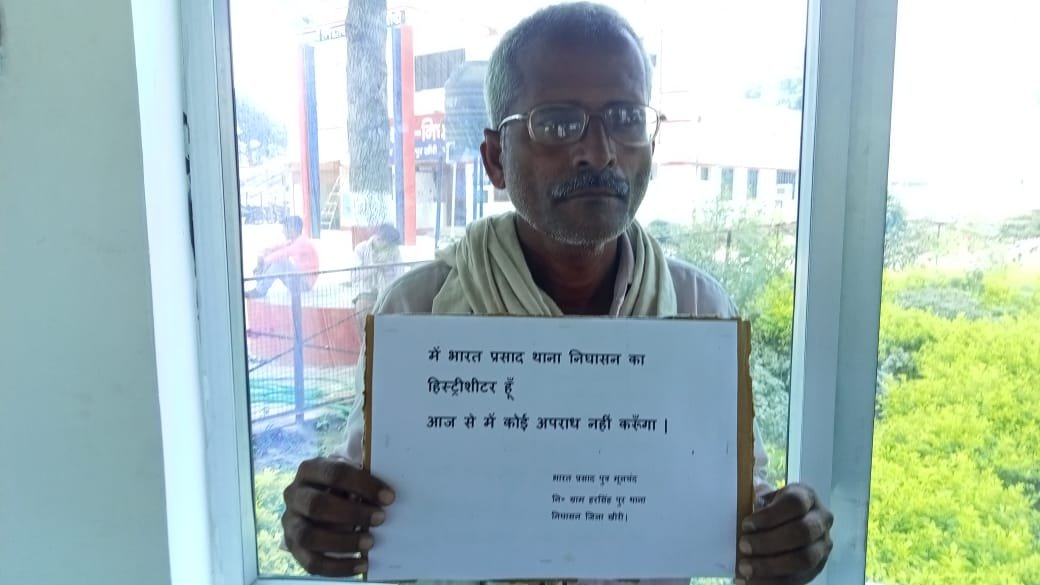 में भारत प्रसाद थाना निघासन का
हिस्ट्रीशीटर हूँ
आज से में कोई अपराध नहीं करूँगा |
भारत प्रसाद पुत्र मूलचंद
नि० ग्राम हरसिंह पुर थाना
निघासन जिला खीरी।